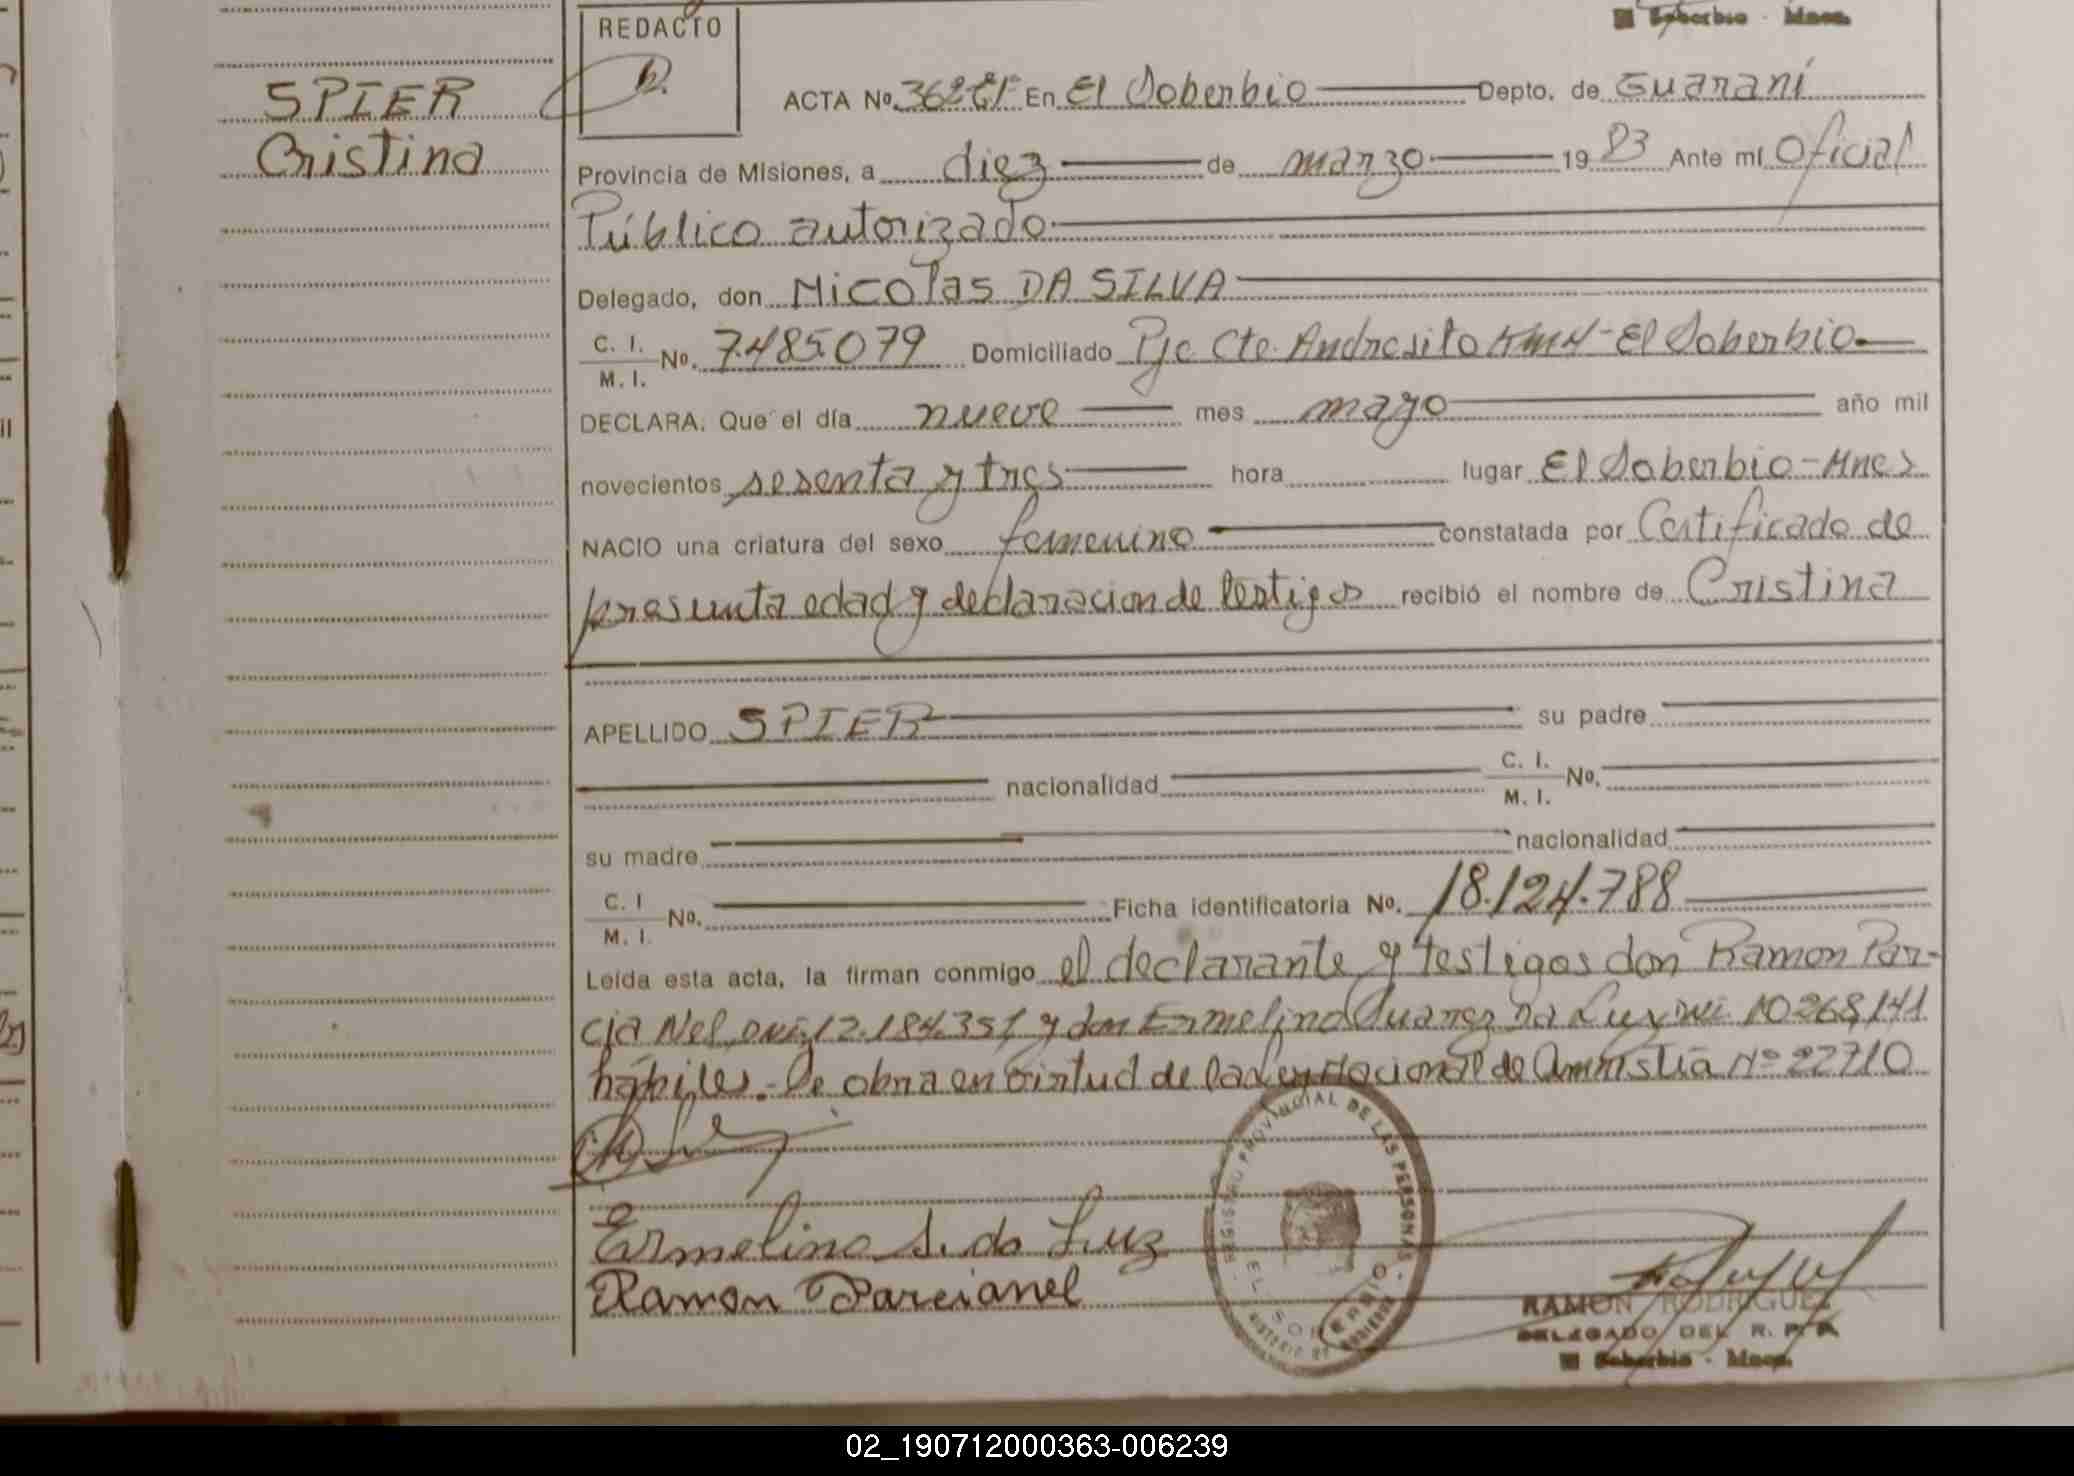 REDACTO
El Soberbio - Mnes.
SPIER
Cristina
ACTA No. 362 En El Soberbio Depto. de Guaraní
Provincia de Misiones, a diez de marzo 19 83 Ante mí Oficial
Público autorizado
Delegado, don Nicolas DA SILVA
C. I. M. I. No. 7.485.079 Domiciliado Pje Cte. Andresito - El Soberbio
DECLARA: Que el día nueve mes mayo año mil
novecientos sesenta y tres hora lugar El Soberbio - Mnes
NACIO una criatura del sexo femenino constatada por Certificado de
presunta edad y declaracion de testigos recibió el nombre de Cristina
APELLIDO SPIER su padre
nacionalidad C. I. M. I. No.
su madre nacionalidad
C. I M. I. No. Ficha identificatoria No. 18.124.788
Leída esta acta, la firman conmigo el declarante y testigos don Ramon Par-
cia Nel, DNI. 12.184.351 y don Ermelino Da Luz 10.268.141
hábiles.- Se obra en virtud de la Ley Nacional de Amnistia Nº 22710
Ermelino S. da Luz
Ramon Parcianel
REGISTRO PROVINCIAL DE LAS PERSONAS
EL SOBERBIO
MINISTERIO DE GOBIERNO
RAMON RODRIGUES
DELEGADO DEL R. P. P.
El Soberbio - Mnes.
02_190712000363-006239